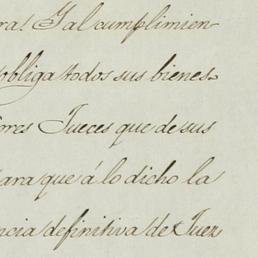 ra. Y al cumplimien
obliga todos sus bienes
ores Jueces que de sus
para que á lo dicho la
ncia definitiva de Juez